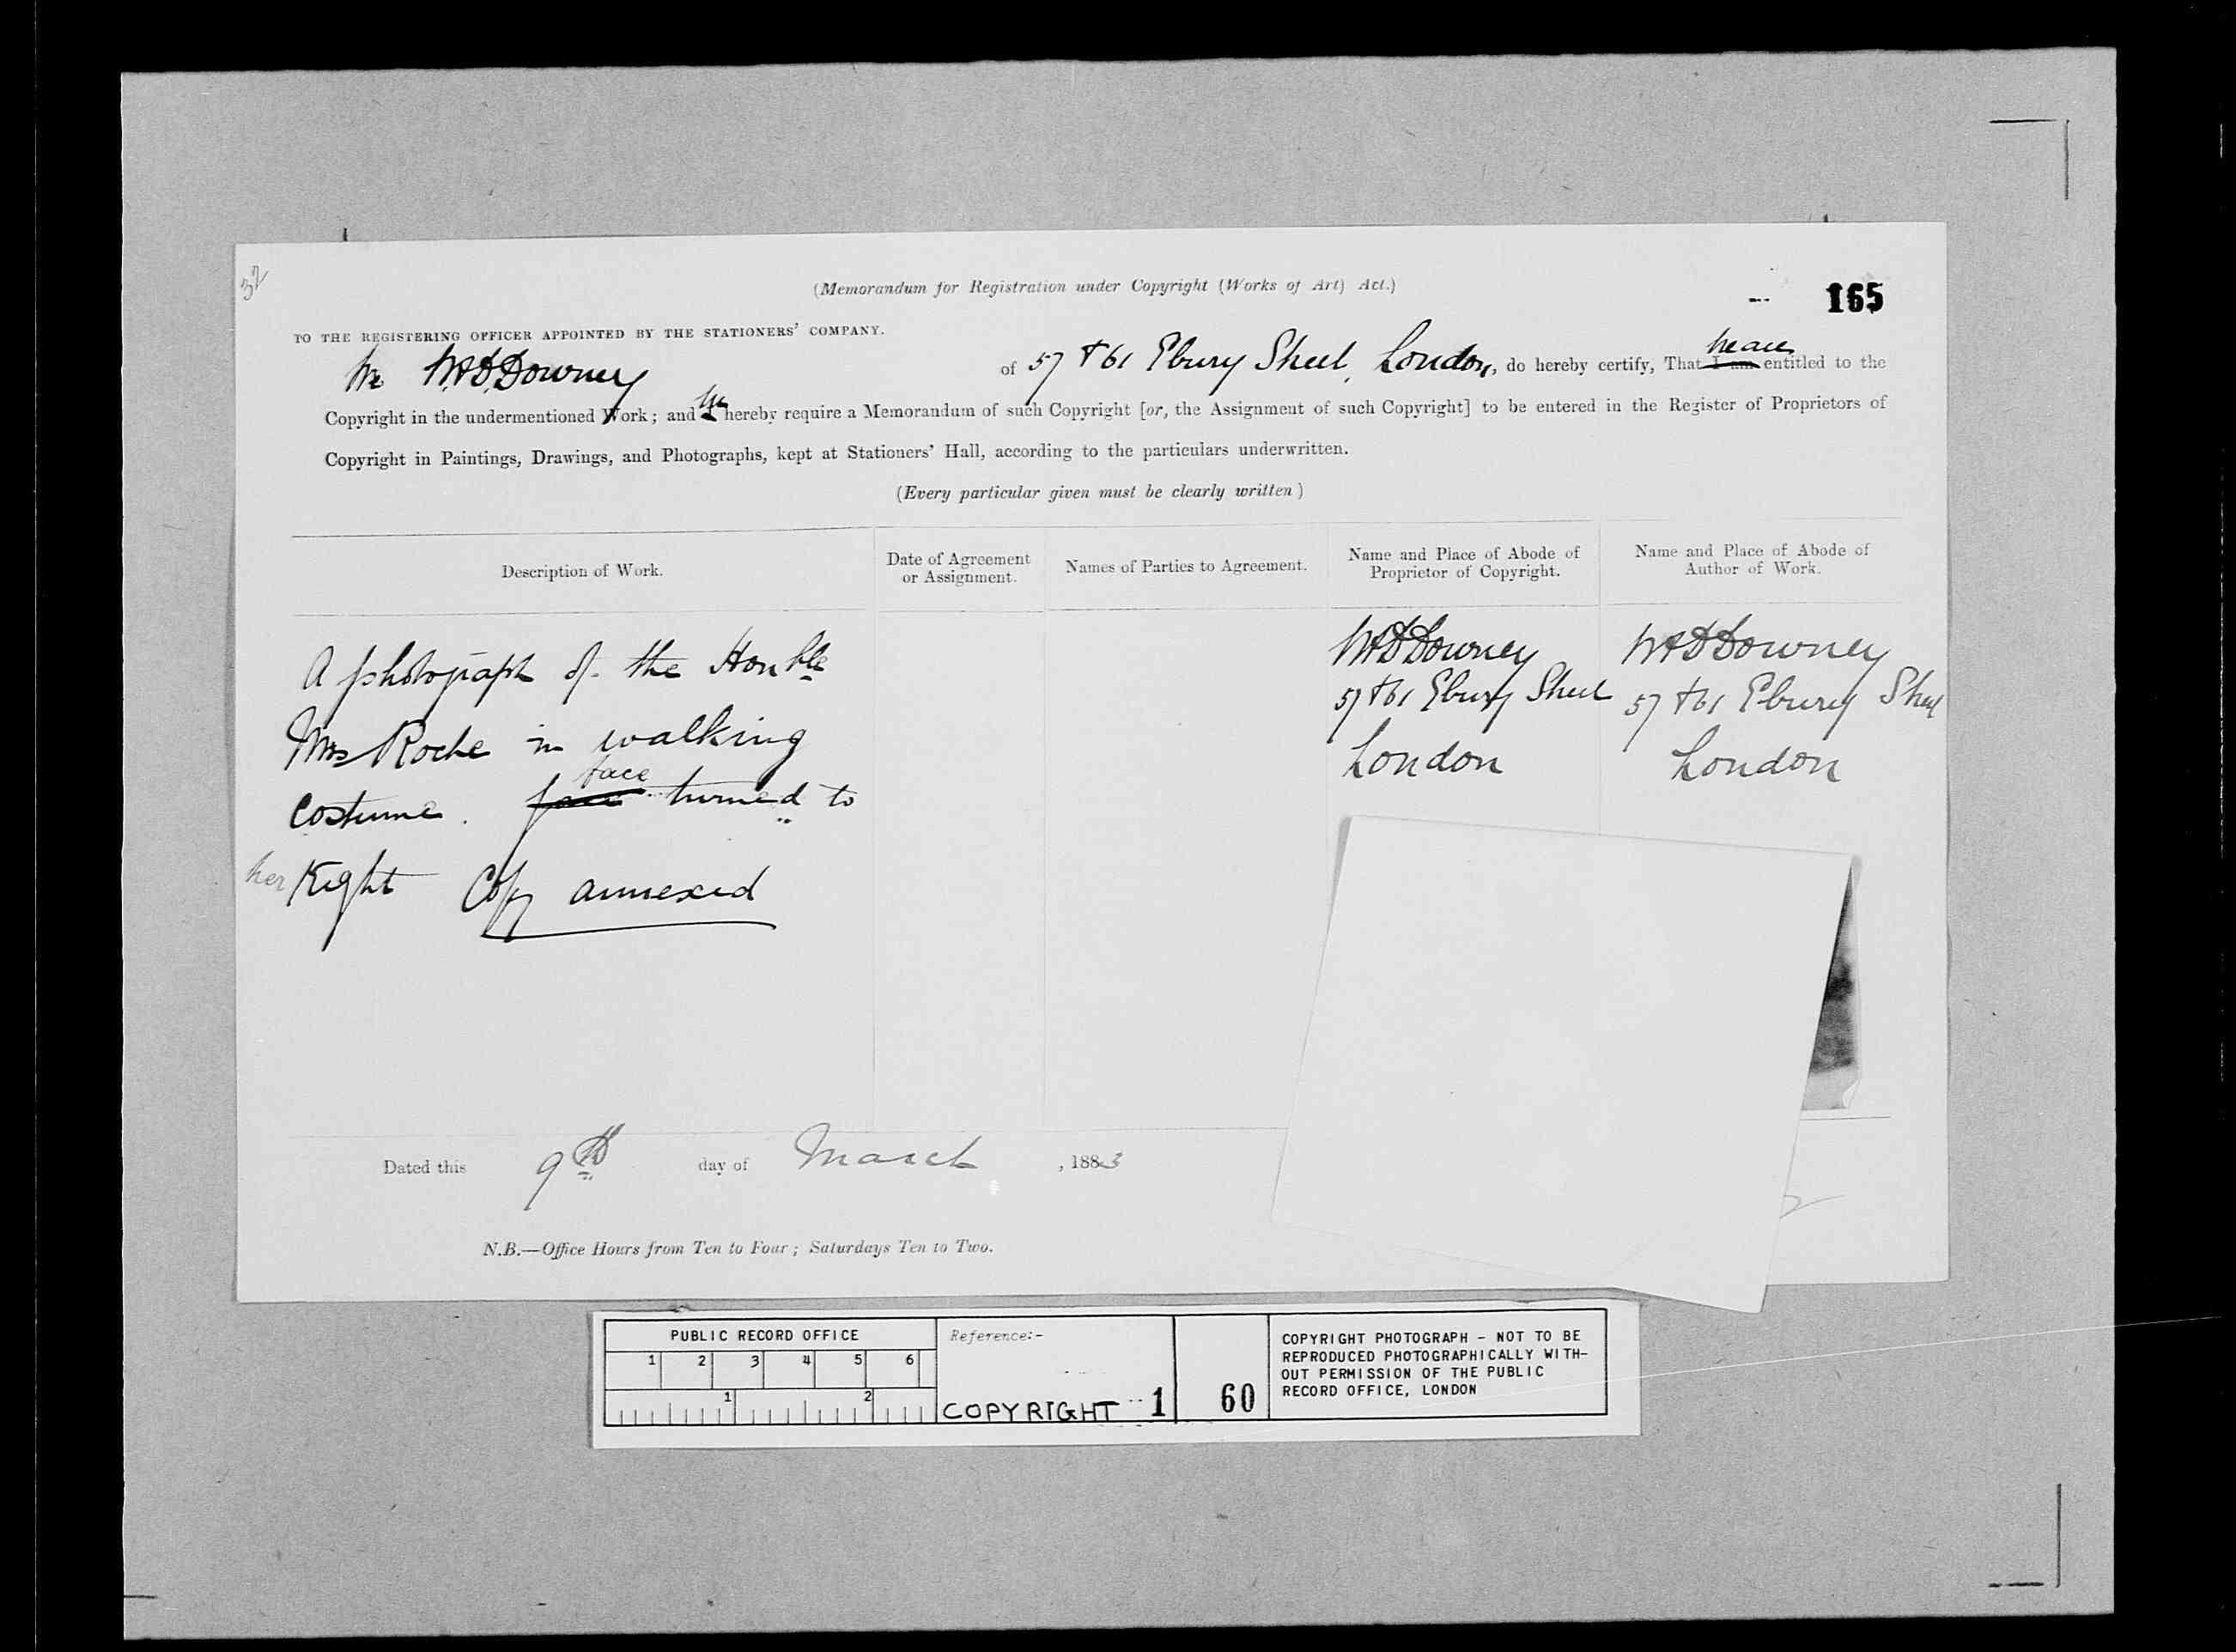 32
(Memorandum for Registration under Copyright (Works of Art) Act.)
165
TO THE REGISTERING OFFICER APPOINTED BY THE STATIONERS' COMPANY.
We W&D Downey of 57 & 61 Ebury Street, London, do hereby certify, That I am we are entitled to the
Copyright in the undermentioned Work; and I we hereby require a Memorandum of such Copyright [or, the Assignment of such Copyright] to be entered in the Register of Proprietors of
Copyright in Paintings, Drawings, and Photographs, kept at Stationers' Hall, according to the particulars underwritten.
(Every particular given must be clearly written)
Description of Work.
Date of Agreement
or Assignment.
Names of Parties to Agreement.
Name and Place of Abode of
Proprietor of Copyright.
Name and Place of Abode of
Author of Work.
A photograph of the Honble
Mrs Roche in walking
costume. face face turned to
her Right Copy annexed
W&D Downey
57 & 61 Ebury Street
London
W&D Downey
57 & 61 Ebury Street
London
Dated this 9th day of March, 1883
N.B.—Office Hours from Ten to Four; Saturdays Ten to Two.
PUBLIC RECORD OFFICE
1 2 3 4 5 6
1 2
Reference:-
COPYRIGHT 1
60
COPYRIGHT PHOTOGRAPH - NOT TO BE
REPRODUCED PHOTOGRAPHICALLY WITH-
OUT PERMISSION OF THE PUBLIC
RECORD OFFICE, LONDON